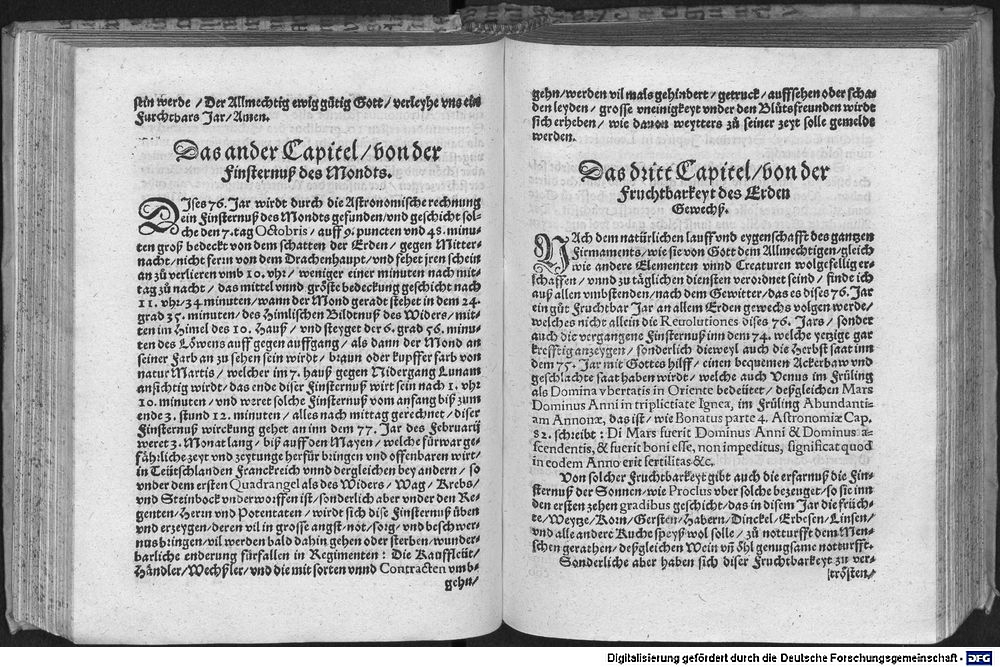 sein werde / Der Allmechtig ewig gütig Gott / verleyhe vns ein
Furchtbars Jar / Amen.
Das ander Capitel / von der
Finsternuß des Mondts.
DIses 76. Jar wirdt durch die Astronomische rechnung
ein Finsternuß des Mondts gefunden / vnd geschicht sol-
che den 7. tag Octobris / auff 9. puncten vnd 48. minu-
ten groß bedeckt von dem schatten der Erden / gegen Mitter-
nacht / nicht ferrn von dem Drachenhaupt / vnd fehet jren schein
an zů verlieren vmb 10. vhr / weniger einer minuten nach mit-
tag zů nacht / das mittel vnnd gröste bedeckung geschicht nach
11. vhr / 34 minuten / wann der Mond geradt stehet in dem 24.
grad 35. minuten / des Himlischen Bildtnuß des Widers / mit-
ten im Himel des 10. Hauß / vnd steyget der 6. grad 56. minu-
ten des Löwens auff gegen auffgang / als dann der Mond an
seiner Farb an zů sehen sein wirdt / braun oder kupffer farb von
natur Martis / welcher im 7. hauß gegen Nidergang Lunam
ansichtig wirdt / das ende diser Finsternuß wirt sein nach 1. vhr
10. minuten / vnd weret solche Finsternuß vom anfang biß zum
ende 3. stund 12. minuten / alles nach mittag gerechnet / diser
Finsternuß wirckung gehet an inn dem 77. Jar des Februarij
weret 3. Monat lang / biß auff den Mayen / welche fürwar ge-
fährliche zeyt vnd zeytunge herfür bringen vnd offenbaren wirt /
in Teütschlanden Franckreich vnnd dergleichen bey andern / so
vnder dem ersten Quadrangel als des Widers / Wag / Krebs /
vnd Steinbock vnderworffen ist / sonderlich aber vnder den Re-
genten / Herrn vnd Potentaten / wirdt sich dise Finsternuß üben
vnd erzeygen / deren vil in grosse angst / not / sorg / vnd beschwer-
nus bringen / vil werden bald dahin gehen oder sterben / wunder-
barliche enderung fürfallen in Regimenten : Die Kauffleüt /
Händler / Wechßler / vnd die mit sorten vnnd Contracten vmb-
gehn /
gehn / werden vil mals gehindert / getruck / auffsehen oder scha-
den leyden / grosse vneinigkeyt vnder den Blůtsfreunden wirdt
sich erheben / wie dauon weytters zů seiner zeyt solle gemeldt
werden.
Das dritt Capitel / von der
Fruchtbarkeyt des Erden
Gewechß.
NAch dem natürlichen lauff vnd eygenschafft des gantzen
Firmaments / wie sie von Gott dem Allmechtigen / gleich
wie andere Elementen vnnd Creaturen wolgefellig er-
schaffen / vnnd zu täglichen diensten verordnet seind / finde ich
auß allen vmbstenden / nach dem Gewitter / das es dises 76. Jar
ein gůt Fruchtbar Jar an allem Erden gewechs volgen werde /
welches nicht allein die Reuolutiones dises 76. Jars / sonder
auch die vergangene Finsternuß inn dem 74. welche yetzige gar
krefftig anzeygen / sonderlich dieweyl auch die Herbst saat inn
dem 75. Jar mit Gottes hilff / einen bequemen Ackerbaw vnd
geschlachte saat haben wirdt / welche auch Venus im Früling
als Domina vbertatis in Oriente bedeütet / deßgleichen Mars
Dominus Anni in triplictiate Ignea, im Früling Abundanti-
am Annonæ, das ist / wie Bonatus parte 4. Astronomiæ Cap.
82. schreibt : Di Mars fuerit Dominus Anni & Dominus a-
scendentis, & fuerit boni esse, non impeditus, significat quod
in eodem Anno erit fertilitas &c.
Von solcher Fruchtbarkeyt gibt auch die erfarnuß die Fin-
sternuß der Sonnen / wie Proclus vber solche bezeuget / so sie inn
den ersten zehen gradibus geschicht / das in disem Jar die früch-
te / Weytze / Korn / Gersten / Habern / Dinckel / Erbesen / Linsen /
vnd alle andere Kuche speyß wol solle / zů notturfft dem Men-
schen gerathen / deßgleichen Wein vñ öhl genugsame notturfft.
Sonderliche aber haben sich diser Fruchtbarkeyt zu ver-
trösten /
Digitalisierung gefördert durch die Deutsche Forschungsgemeinschaft - DFG